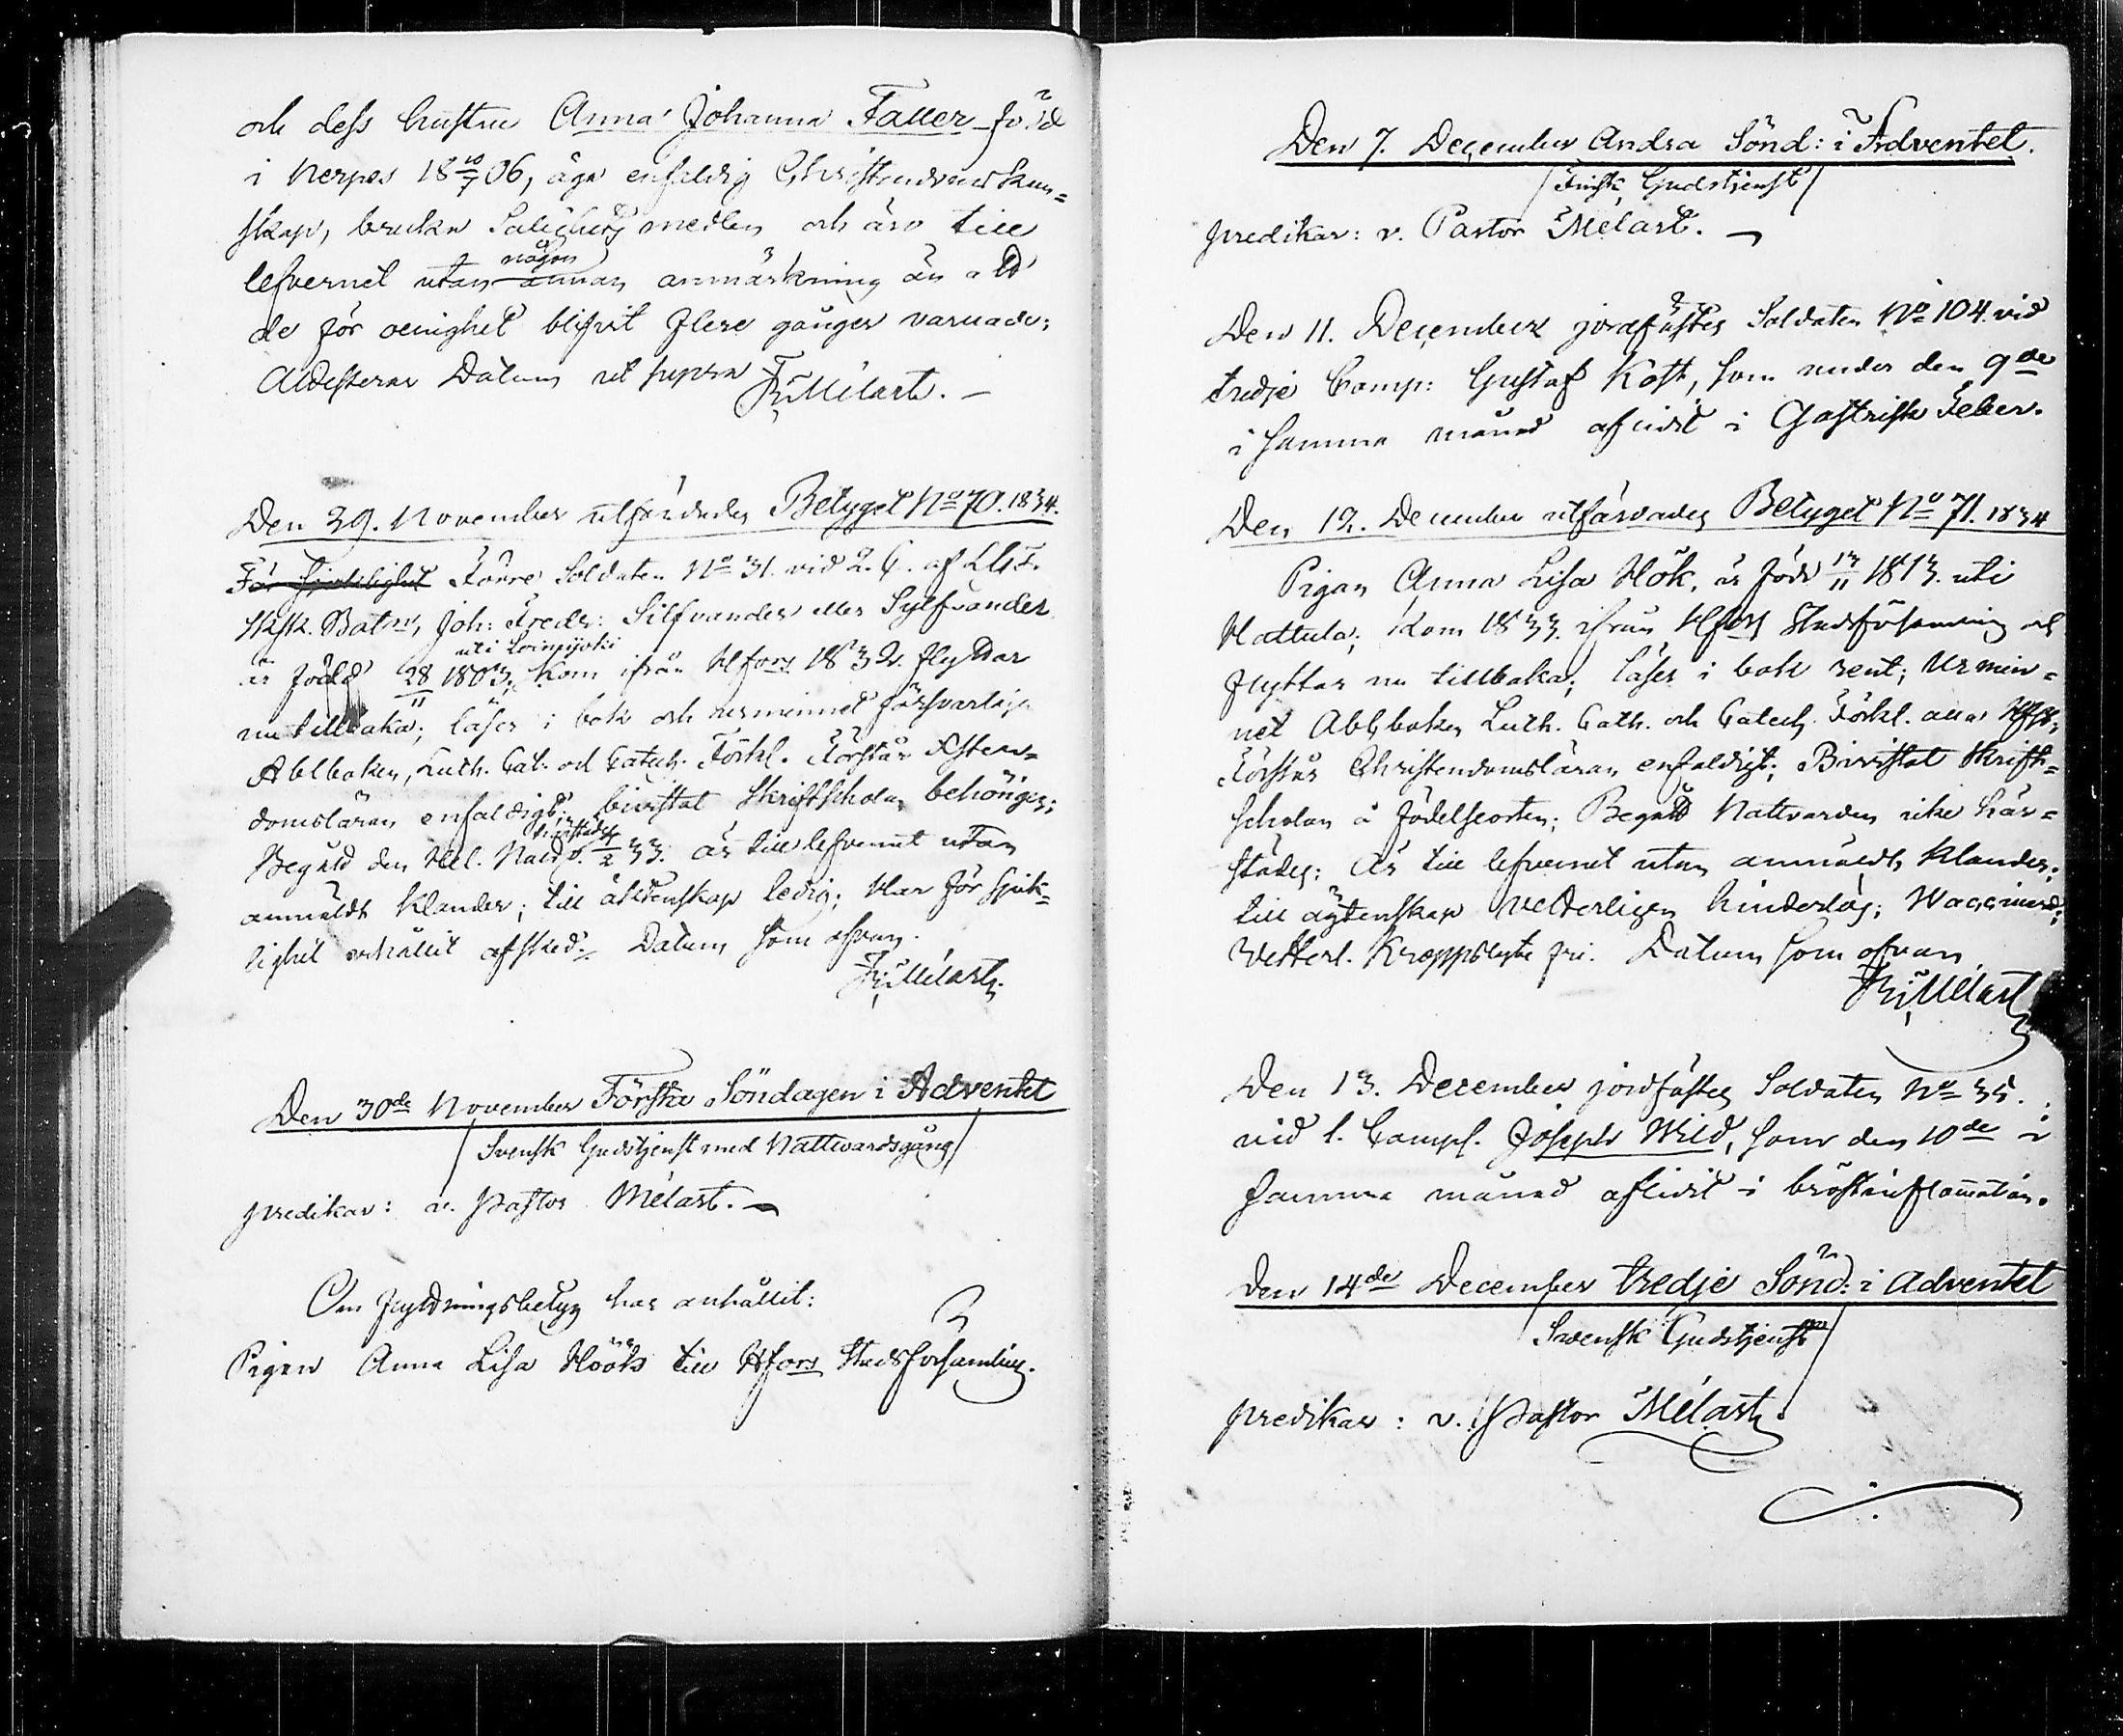 och dess hustru Anna Johanna Faller född
i Nerpes 18 10/7 06, äga enfaldig Christendomskun-
skap, bruka Salighets medlen och äro till
någon
lefvernet utan annan anmärkning än att
de för oenighet blifvit flere gånger varnade;
Datum ut supra Fr: Mélart. —
Den 29. November utfärdades Betyget No 70. 1834.
För sjuklighet Förre Soldaten No 31. vid 2. C. af
Batn, Joh: Fredr: Silfvander eller Sylfvander
uti Loimijoki
är född 28/11 1803; Kom ifrån Hfors 1832. flyttar
nu tillbaka; läser i bok och urminnet försvarligt
Abcboken, Luth. Cat. och Catech. Förkl. Förstår Xsten-
domsläran enfaldigt; bivistat Skriftskolan behörigen;
härstädes
Begått den Hel. Nattv. 4/2 33. är till lefvernet utan
anmäldt klander; till äktenskap ledig; Har för sjuk-
lighet erhållit afsked. Datum som ofvan.
Fr: Mélart.
Den 30de November Första Söndagen i Adventet
Svensk Gudstjenst med Nattvardsgång
predikar: v. Pastor Mélart. —
Om flyttningsbetyg har anhållit:
Pigan Anna Lisa Höök till Hfors Stadsförsamling.
Den 7. December Andra Sönd: i Adventet.
Finsk Gudstjenst
predikar: v. Pastor Mélart. —
Den 11. December jordfästes Soldaten No 104. vid
tredje Comp: Gustaf Kost, som under den 9de
i samma månad aflidit i Gastrisk Feber.
Den 12. December utfärdades Betyget No 71. 1834
Pigan Anna Lisa Hök, är född 13/11 1813. uti
Hattula; Kom 1833. ifrån Hfors Stadsförsamling och
flyttar nu tillbaka; läser i bok rent; Urmin-
net Abcboken Luth. Cath. och Catech. Förkl.
Förstår Christendomsläran enfaldigt; Bivistat Skrift-
scholan å födelseorten; Begått Nattvarden icke här-
städes; är till lefvernet utan anmäldt klander;
till ägtenskap vetterligen hinderlös; Vaccinerad;
Vetterl. Kroppslyte fri. Datum som ofvan.
Fr: Mélart
Den 13. December jordfästes Soldaten No 35.
vid 1. Comps. Joseph Wild, som den 10de i
samma månad aflidit i bröstinflamation.
Den 14de December tredje Sönd: i Adventet
Svensk Gudstjenst
predikar: v. Pastor Mélart.